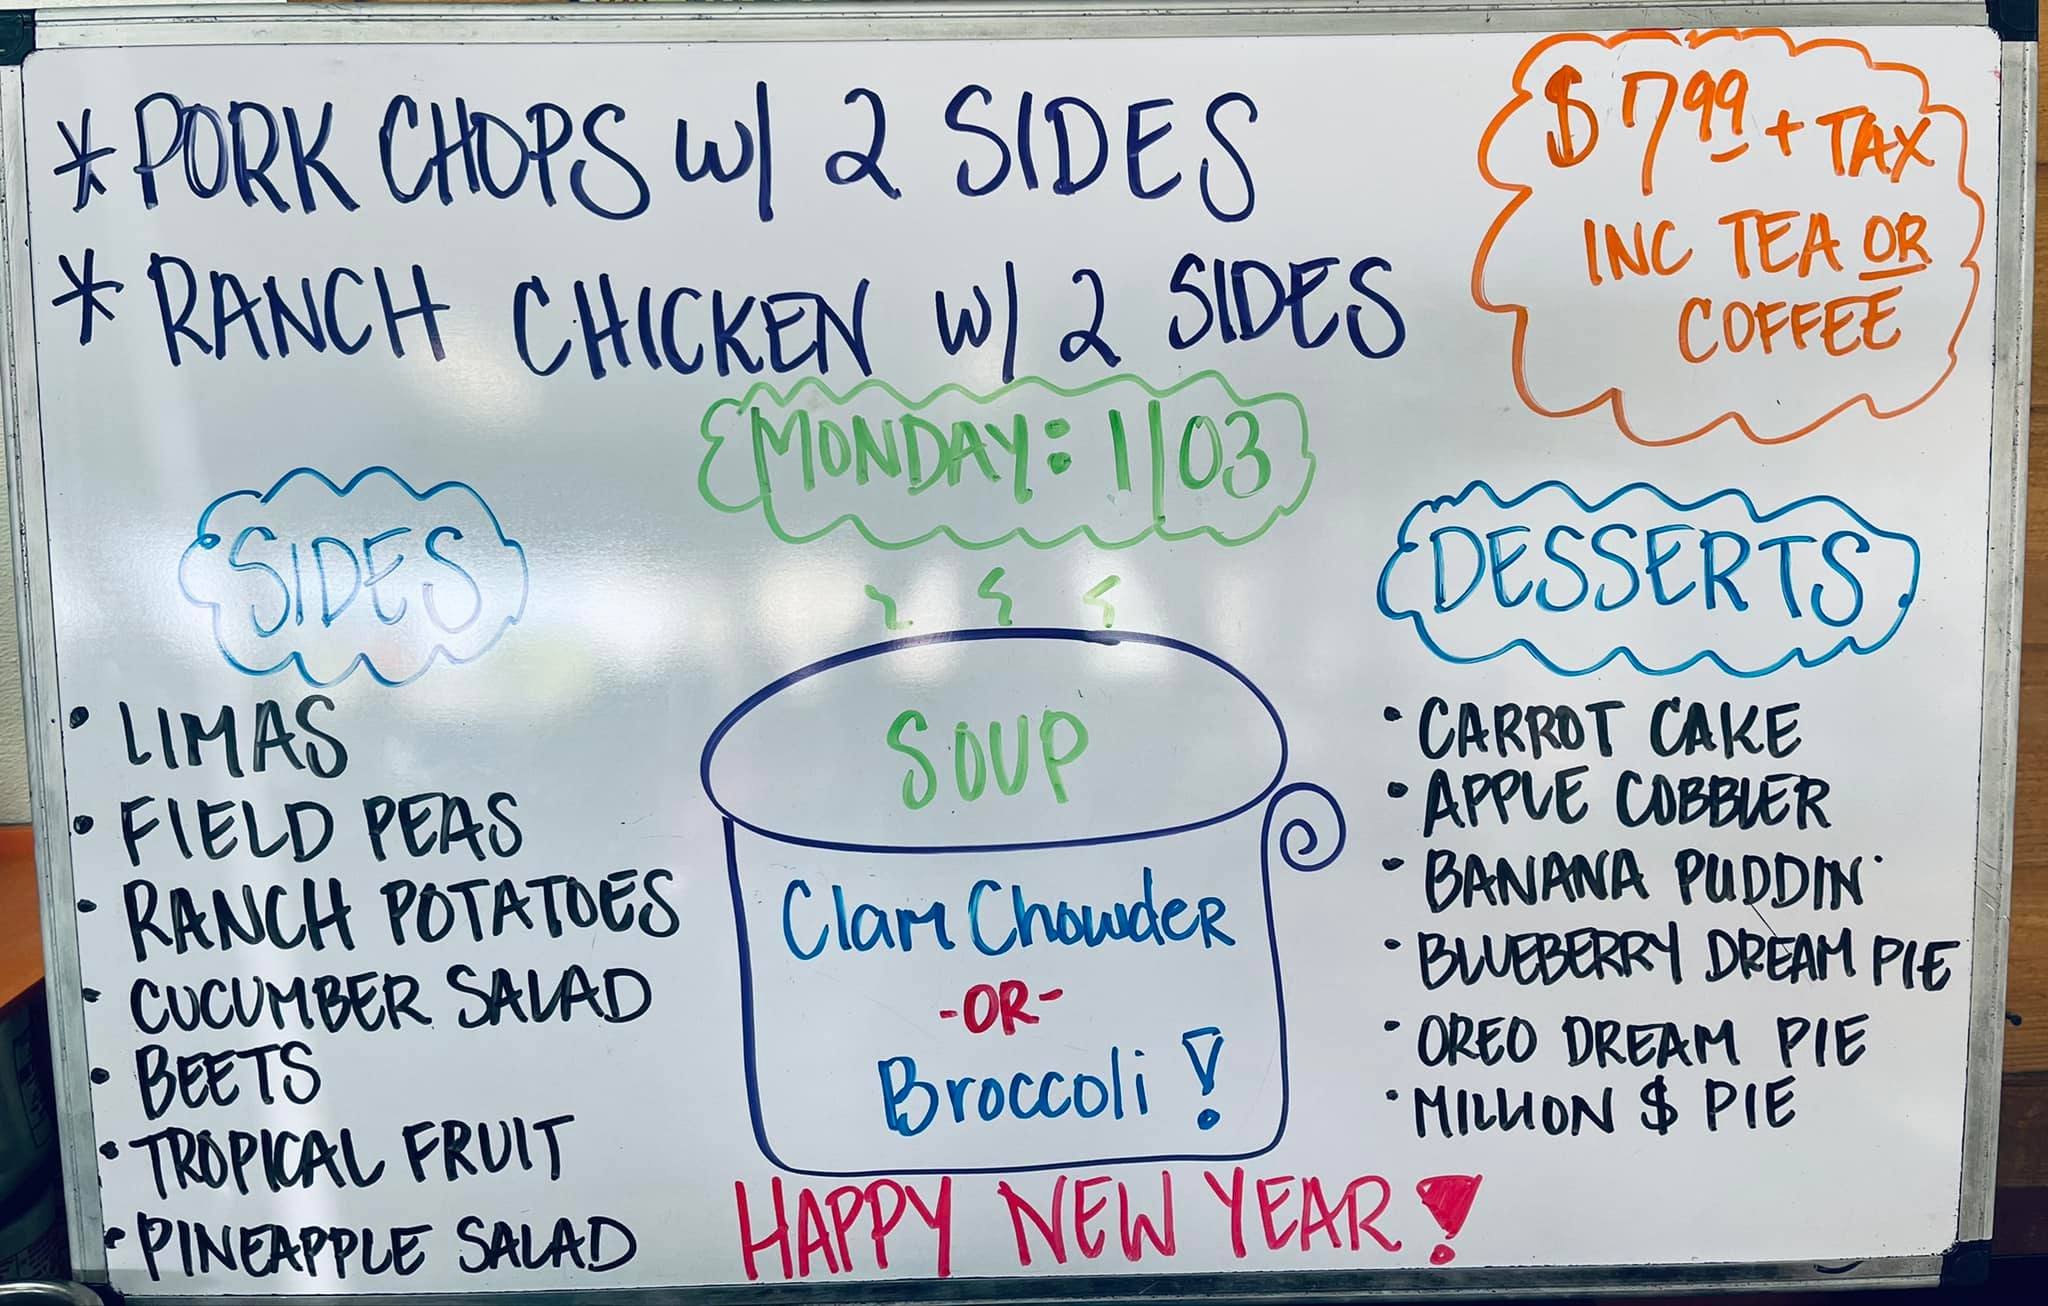 * PORK CHOPS W/ 2 SIDES
* RANCH CHICKEN W/ 2 SIDES
$7.99 + TAX
INC TEA OR
COFFEE
MONDAY: 1/03
SIDES
• LIMAS
• FIELD PEAS
• RANCH POTATOES
• CUCUMBER SALAD
• BEETS
• TROPICAL FRUIT
• PINEAPPLE SALAD
SOUP
Clam Chowder
-OR-
Broccoli!
HAPPY NEW YEAR!
DESSERTS
• CARROT CAKE
• APPLE COBBLER
• BANANA PUDDIN'
• BLUEBERRY DREAM PIE
• OREO DREAM PIE
• MILLION $ PIE